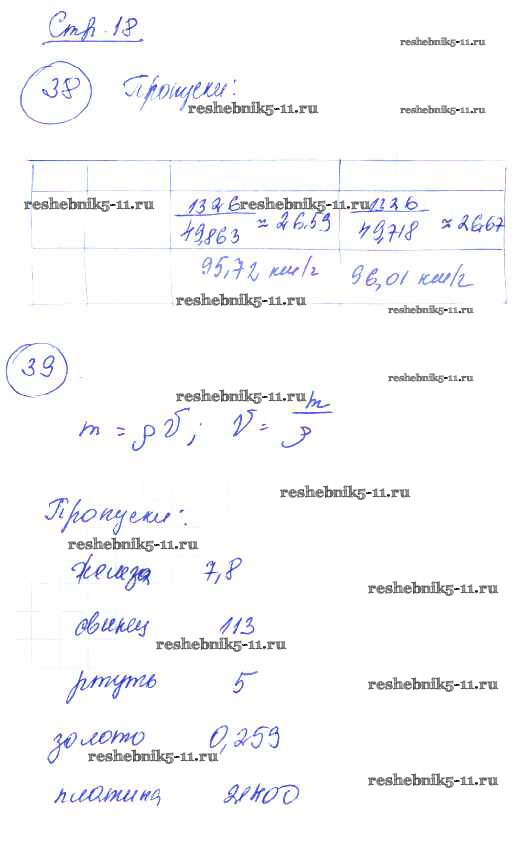 Стр. 18
reshebnik5-11.ru
38 Пропуски:
reshebnik5-11.ru reshebnik5-11.ru
reshebnik5-11.ru reshebnik5-11.ru
1326/49,863 ≈ 26,59 1326/49,718 ≈ 26,67
95,72 км/г 96,01 км/г
reshebnik5-11.ru
reshebnik5-11.ru
39
reshebnik5-11.ru
reshebnik5-11.ru
m = ρV; V = m/ρ
reshebnik5-11.ru
Пропуски:
reshebnik5-11.ru
железа 7,8
reshebnik5-11.ru
свинец 113
reshebnik5-11.ru
ртуть 5
reshebnik5-11.ru
золото 0,259
reshebnik5-11.ru
reshebnik5-11.ru
платина 21400